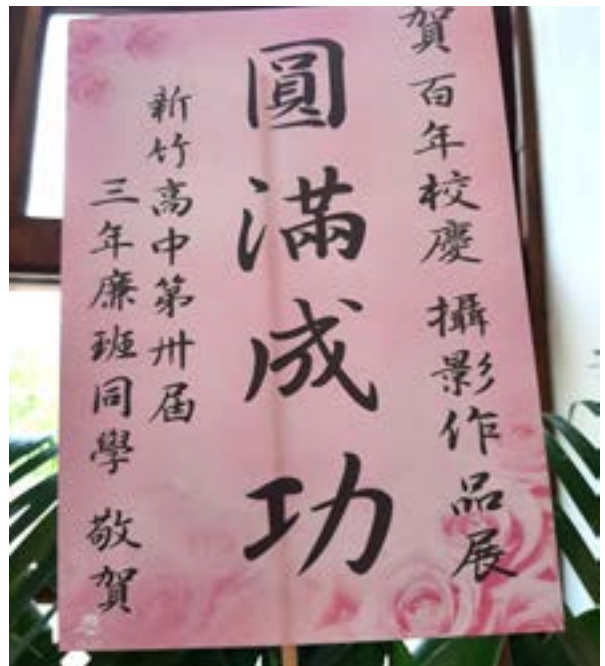 賀 百年校慶 攝影作品展
圓滿成功
新竹高中第卅屆
三年廉班同學 敬賀